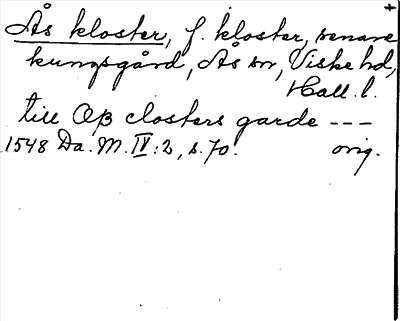 Ås kloster, f. kloster, senare
kungsgård, Ås sn, Viske hd,
Hall. l.
till Oβ closters garde ---
1548 Da. M. IV:2, s. 70. orig.